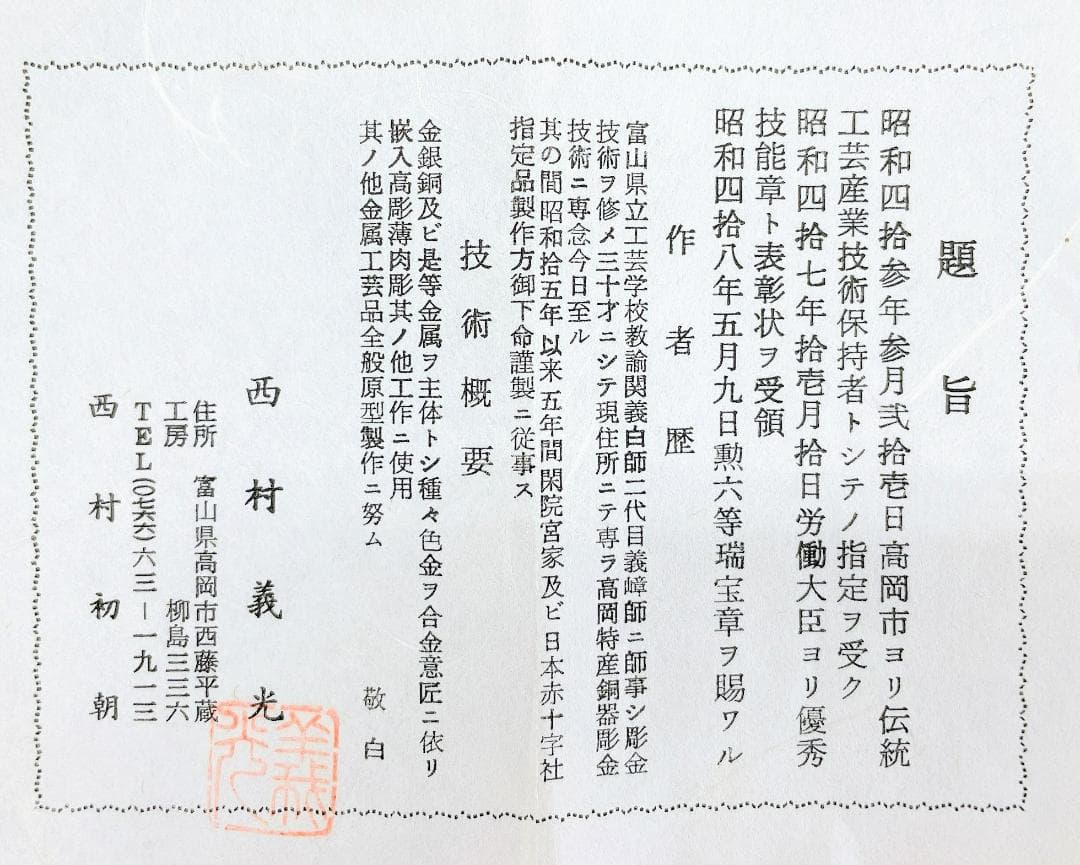 題旨
昭和四拾参年参月弐拾壱日高岡市ヨリ伝統
工芸産業技術保持者トシテノ指定ヲ受ク
昭和四拾七年拾壱月拾日労働大臣ヨリ優秀
技能章ト表彰状ヲ受領
昭和四拾八年五月九日勲六等瑞宝章ヲ賜ワル
作者歴
富山県立工芸学校教諭関義白師二代目義嶂師ニ師事シ彫金
技術ヲ修メ三十才ニシテ現住所ニテ専ラ高岡特産銅器彫金
技術ニ専念今日至ル
其の間昭和拾五年以来五年間閑院宮家及ビ日本赤十字社
指定品製作方御下命謹製ニ従事ス
技術概要
金銀銅及ビ是等金属ヲ主体トシ種々色金ヲ合金意匠ニ依リ
嵌入高彫薄肉彫其ノ他工作ニ使用
其ノ他金属工芸品全般原型製作ニ努ム
敬白
西村義光
住所 富山県高岡市西藤平蔵
工房 柳島三三六
TEL(〇七六六)六三－一九一三
西村初朝
義光